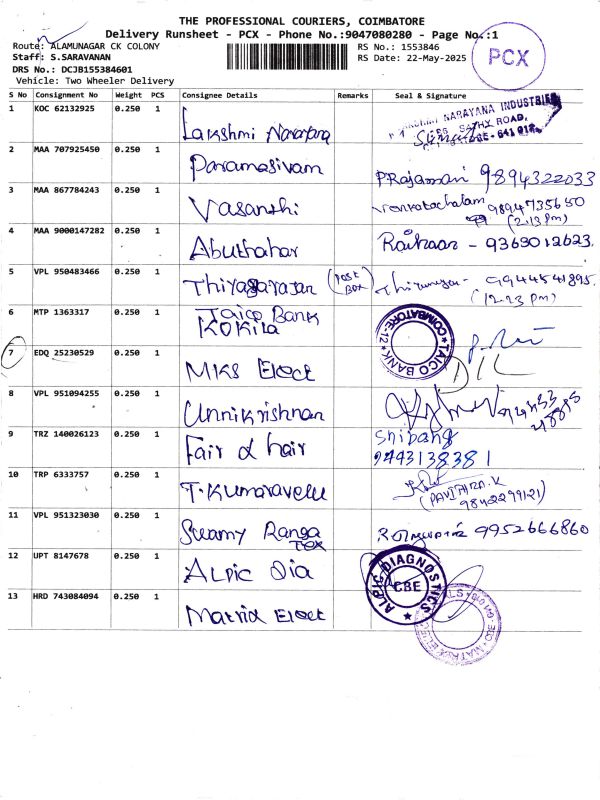 THE PROFESSIONAL COURIERS, COIMBATORE
Delivery Runsheet - PCX - Phone No.:9047080280 - Page No.:1
Route: ALAMUNAGAR CK COLONY
RS No.: 1553846
Staff: S.SARAVANAN
RS Date: 22-May-2025
PCX
DRS No.: DCJB155384601
Vehicle: Two Wheeler Delivery
S No Consignment No Weight PCS Consignee Details Remarks Seal & Signature
1 KOC 62132925 0.250 1 Lakshmi Narayana
NARAYANA INDUSTRIES
SATHY ROAD,
2 MAA 707925450 0.250 1 Paramasivam P Rajamani 9894322033
3 MAA 867784243 0.250 1 Vasanthi Venkatachalam 9894735650
(2.13 Pm)
4 MAA 9000147282 0.250 1 Abuthahar Raihaan - 9363012623.
5 VPL 950483466 0.250 1 Thiyagarajan (Post Box) 9944541895.
(12.23 Pm)
6 MTP 1363317 0.250 1 Taico Bank
KOKILA
TAICO BANK COIMBATORE-12
7 EDQ 25230529 0.250 1 MKS Elect D/L
8 VPL 951094255 0.250 1 Unnikrishnan
9 TRZ 140026123 0.250 1 Fair & hair Shibang
9443138381
10 TRP 6333757 0.250 1 T. Kumaravelu
(PAVITHRA.K
9842299121)
11 VPL 951323030 0.250 1 Swamy Ranga
Tex
9952666860
12 UPT 8147678 0.250 1 ALPIC Dia
ALPIC DIAGNOSTICS
CBE
13 HRD 743084094 0.250 1 Matrix Elect